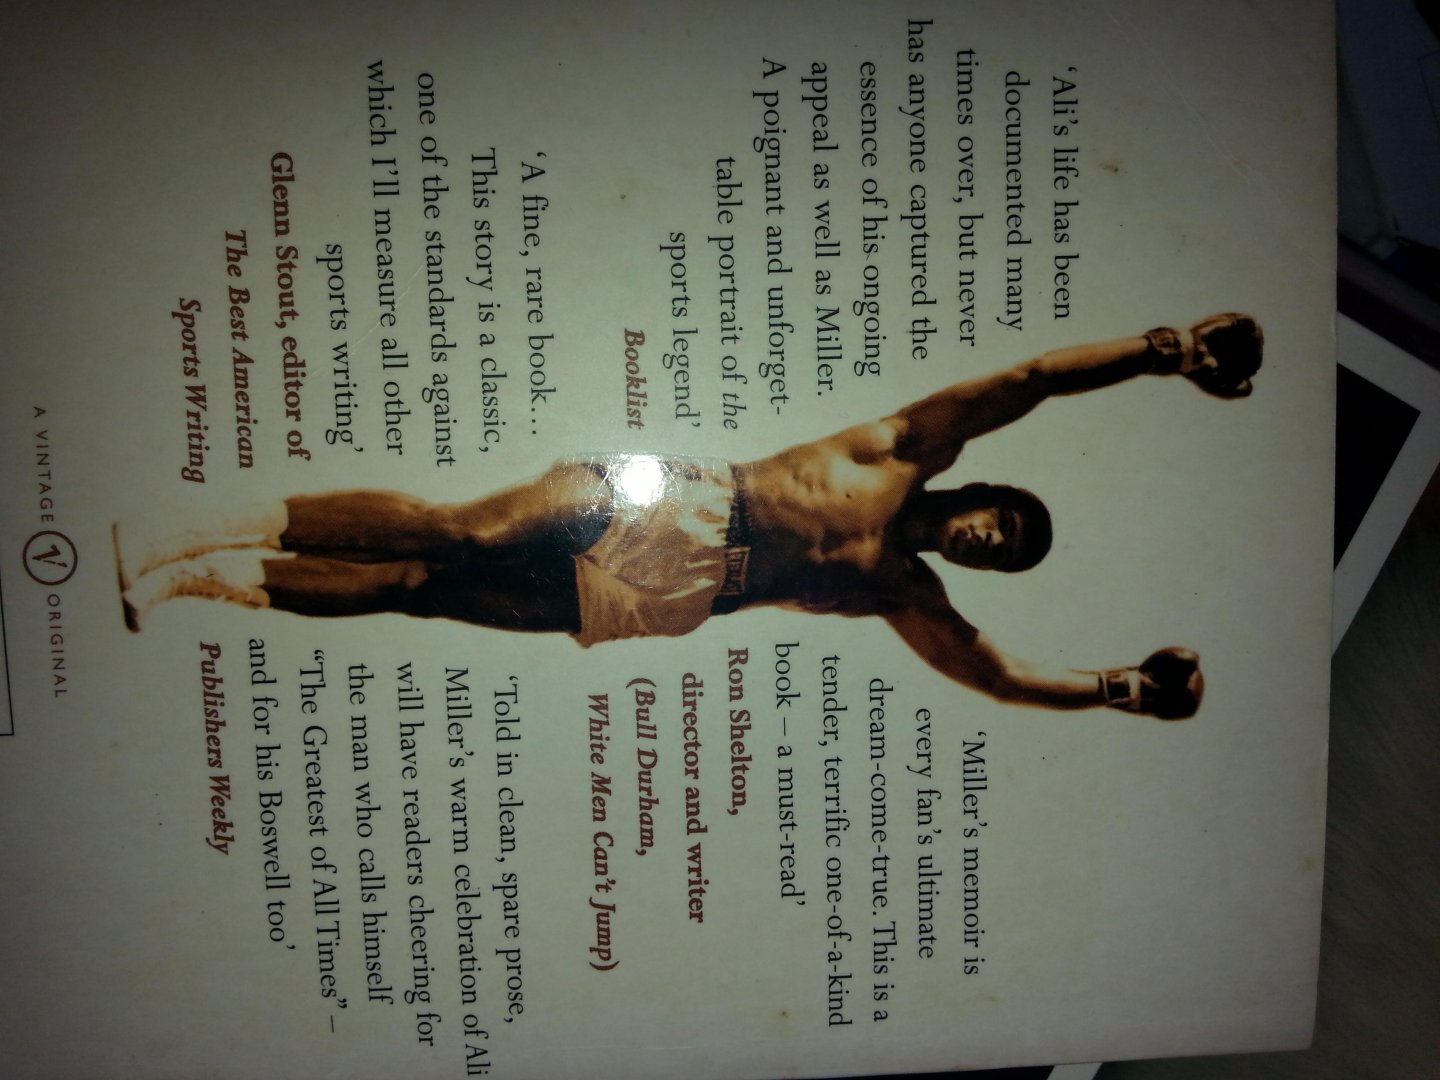 ‘Ali’s life has been
documented many
times over, but never
has anyone captured the
essence of his ongoing
appeal as well as Miller.
A poignant and unforget-
table portrait of the
sports legend’
Booklist
‘A fine, rare book…
This story is a classic,
one of the standards against
which I’ll measure all other
sports writing’
Glenn Stout, editor of
The Best American
Sports Writing
‘Miller’s memoir is
every fan’s ultimate
dream-come-true. This is a
tender, terrific one-of-a-kind
book – a must-read’
Ron Shelton,
director and writer
(Bull Durham,
White Men Can’t Jump)
‘Told in clean, spare prose,
Miller’s warm celebration of Ali
will have readers cheering for
the man who calls himself
“The Greatest of All Times” –
and for his Boswell too’
Publishers Weekly
A VINTAGE V ORIGINAL